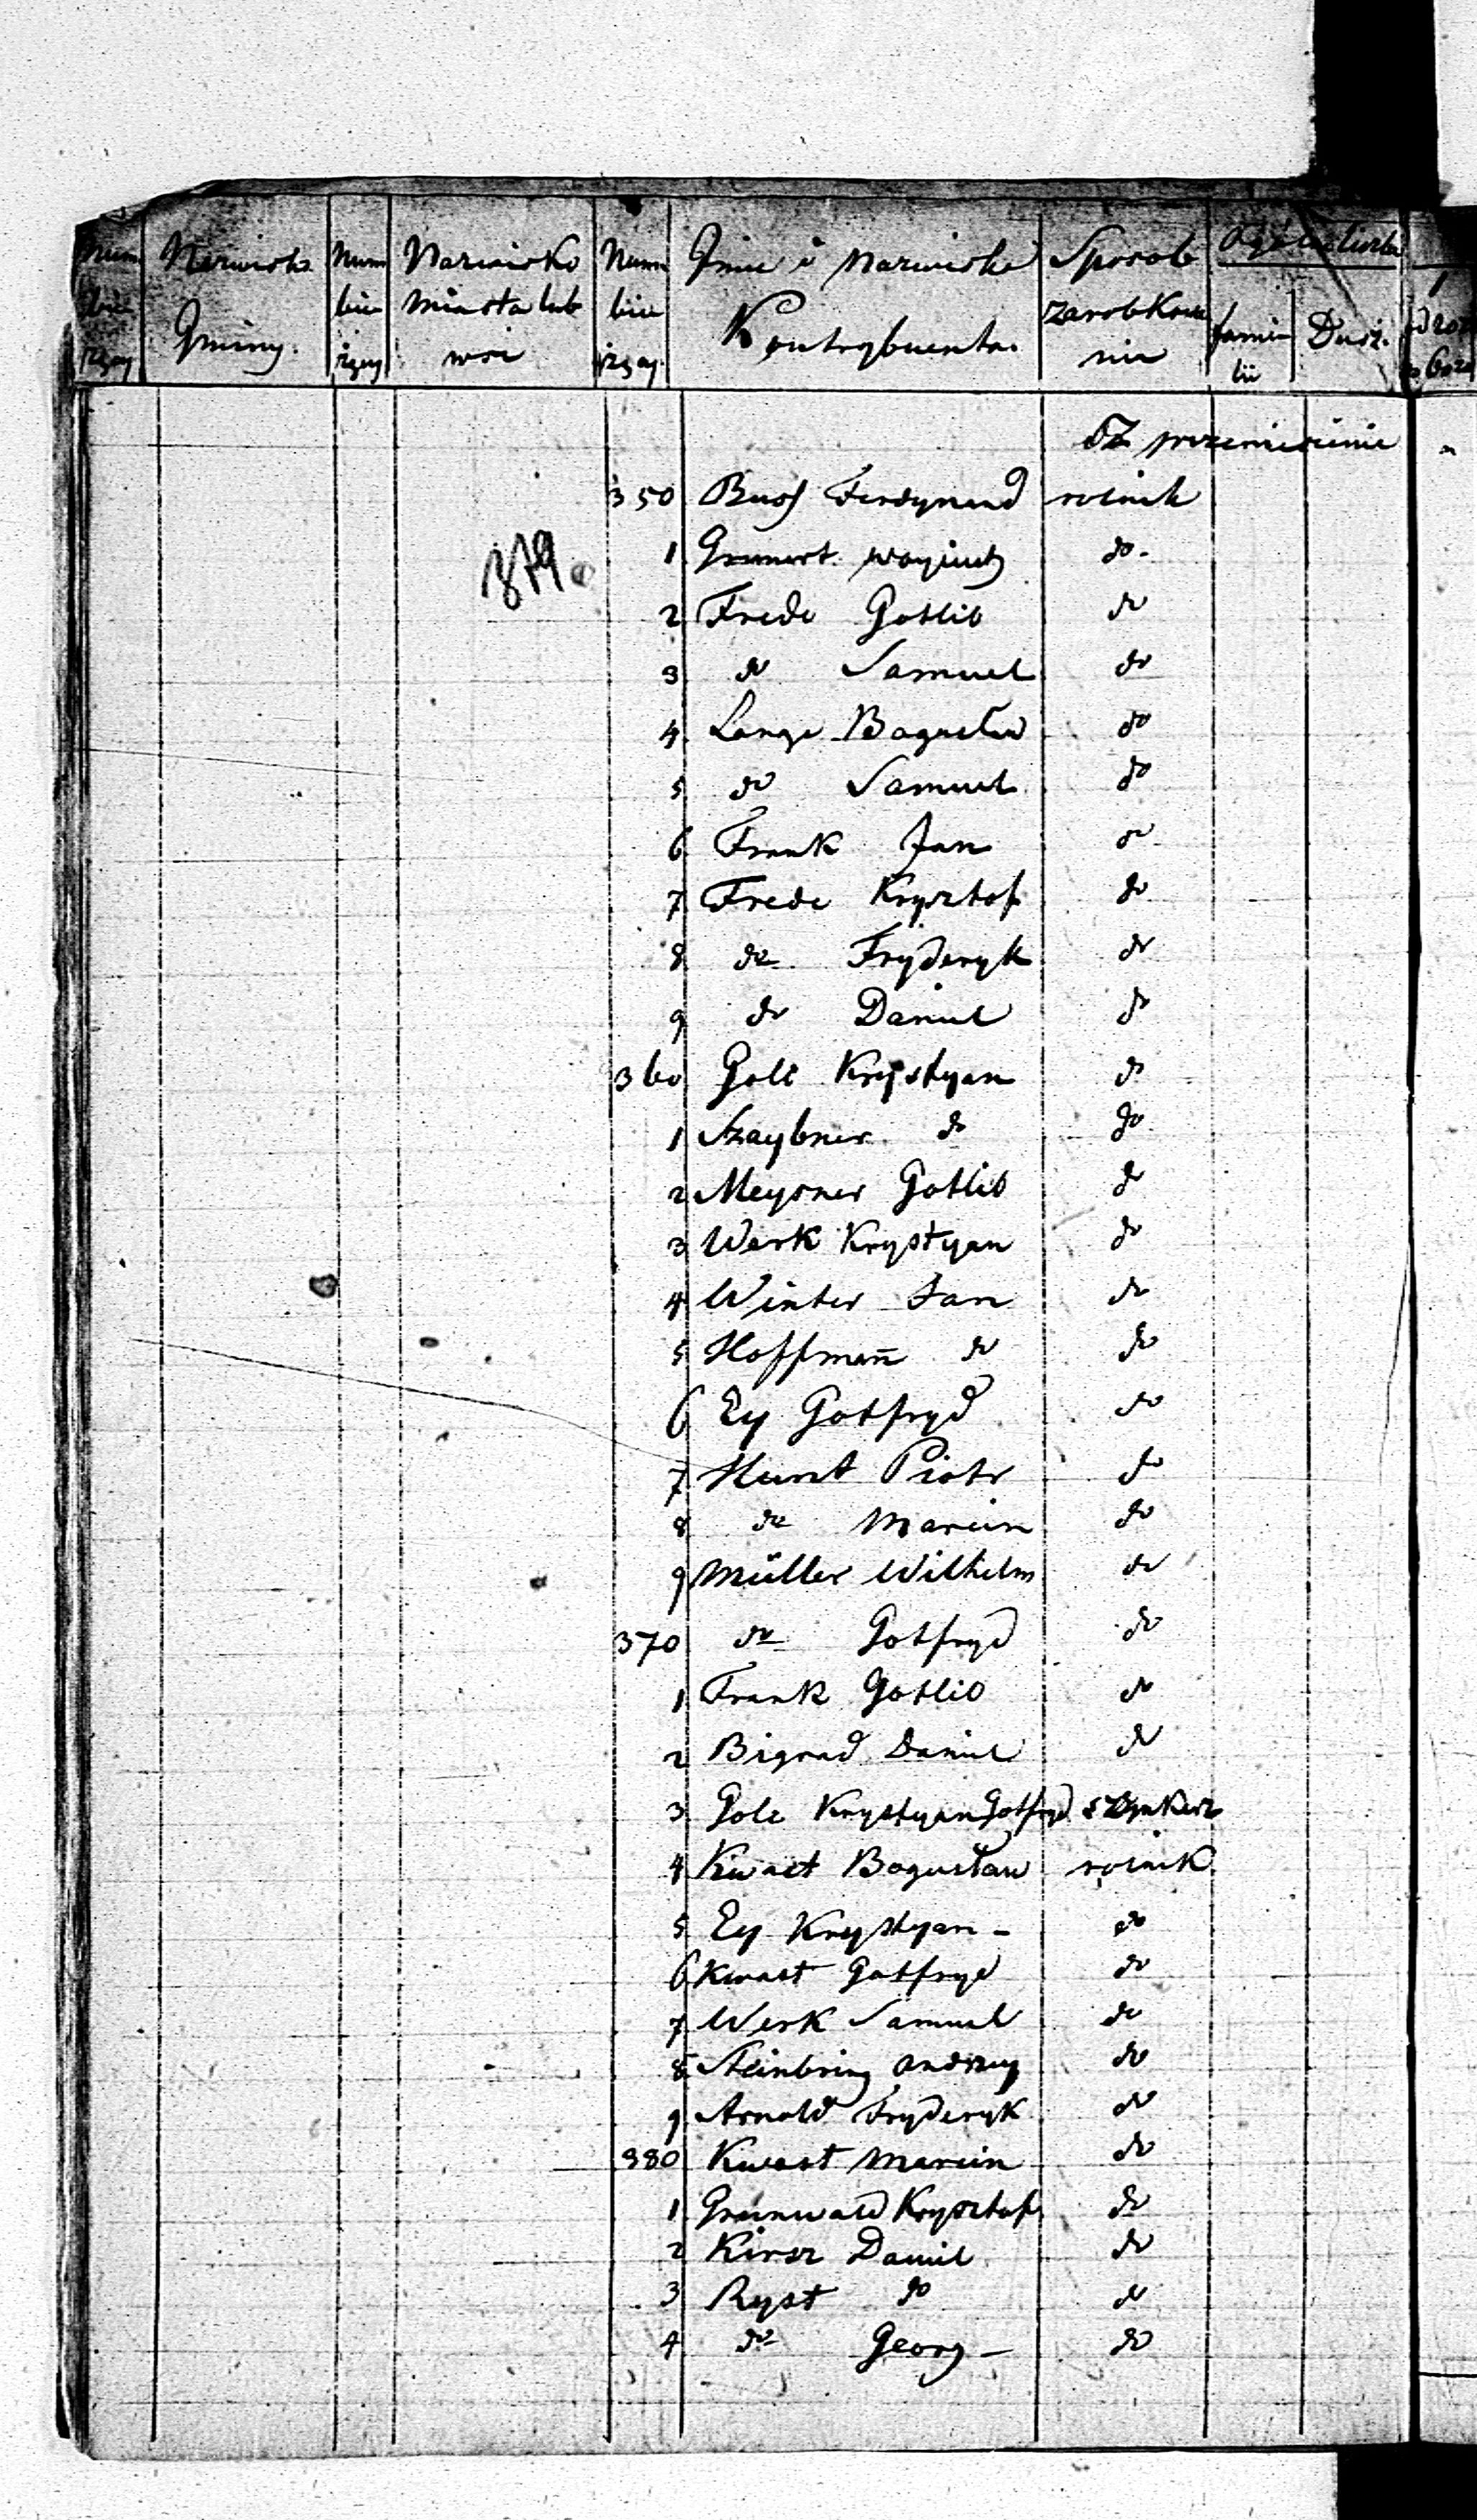 Numer bieżący
Nazwisko Gminy.
Numer bieżący
Nazwisko miasta lub wsi
Numer bieżący.
Jmie i Nazwisko Kontrybuenta.
Sposob zarobkowania
Ogólna liczba
familii
Dusz.
Z przeniesienia
379.
350 Busch Ferdynand rolnik
1 do.
2 Frede Gotlib do
3 do Samuel do
4 Lange Bogusław do
5 do Samuel do
6 Frank Jan do
7 Frede Krysztof do
8 do Fryderyk do
9 do Daniel do
360 Gole Krystyan do
1 Szaybner do do
2 Meysner Gotlib do
3 Werk Krystyan do
4 Winter Jan do
5 Hoffmañ do do
6 Ey Gotfryd do
7 Hurst Piotr do
8 do Marcin do
9 Müller Wilhelm do
370 do Gotfryd do
1 Frank Gotlib do
2 Bigrad Daniel do
3 Gole Krystyan Gotfryd szynkarz
4 Kwast Bogusław rolnik
5 Ey Krystyan - do
6 Kwast Gotfryd do
7 Werk Samuel do
8 Steinbring Andrzey do
9 Arnold Fryderyk do
380 Kwast Marcin do
1 Grunwald Krysztof do
2 Kirsz Daniel do
3 Ryst do do
4 do Georg - do